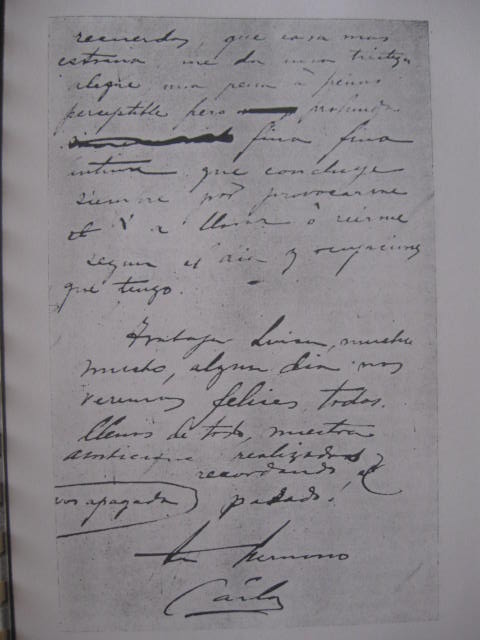 recuerdos, que cosa mas
estraña me da una tristeza
alegre una pena á penas
perceptible pero profunda
fina fina
intima que concluye
siempre por provocarme
á llorar ó reirme
segun el dia y ocupaciones
que tengo.
Trabajar Luisa, mucho
mucho, algun dia nos
veremos felices todos.
llenos de todo, nuestra
realizadas
recordando el
vos apagada pasado!
tu hermano
Cárlos